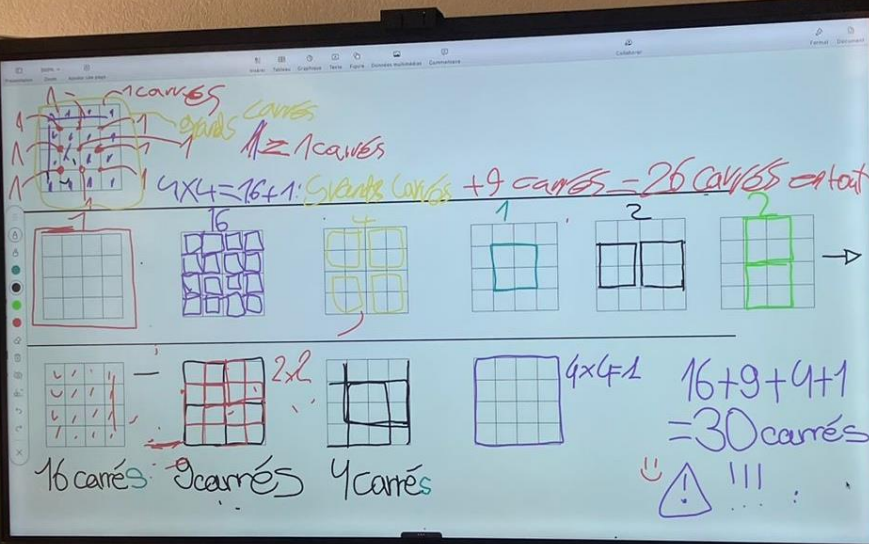 Insérer Tableau Graphique Texte Figure Données multimédias Commentaire
Collaborer
Format Document
1 carrés
grands carrés
1 = 1 carrés
4x4=16+1: 5 grands carrés +9 carrés = 26 carrés en tout
1 16 4 1 2 2
2x2
4x4=1
16+9+4+1
=30 carrés
16 carrés 9 carrés 4 carrés
!!!